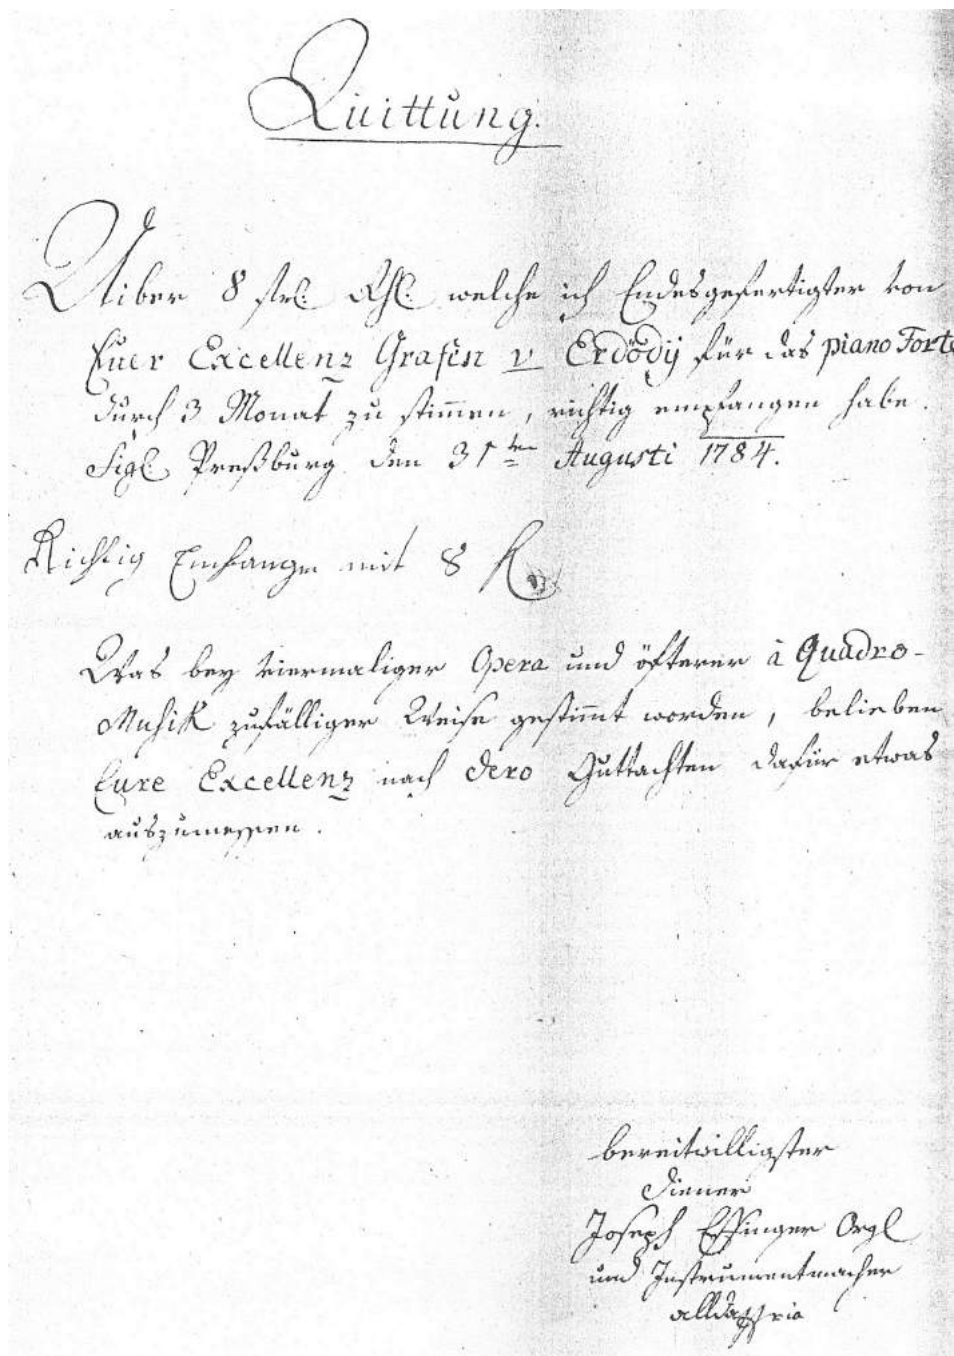 Quittung.
Uiber 8 welche ich Endesgefertigter von
Euer Excellenz Grafin v Erdödÿ für das piano Forte
durch 3 Monat zu stimmen, richtig empfangen habe.
Sigl. Preßburg den 31ten Augusti 1784.
Richtig mit 8
Was bey viermaliger Opera und öfterer à Quadro-
Musik zufälliger Weise gestimmt worden, belieben
Eure Excellenz nach dero Guttachten dafür etwas
auszumessen.
bereitwilligster
diener
Joseph Effinger Orgl
und Instrumentmacher